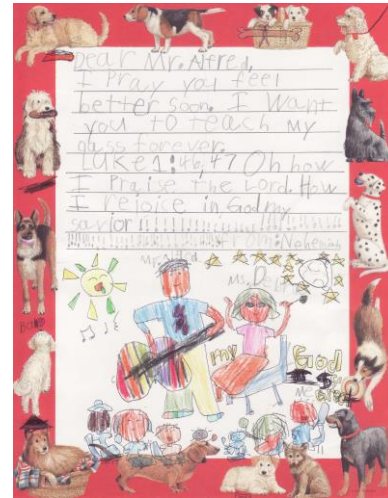 Dear Mr. Alfred,
I Pray you feel
better soon. I want
you to teach my
class forever.
Luke 1:46,47 Oh how
I Praise the Lord. How
I rejoice in God my
savior!!!!!!!!!!!!!!!!!!!!
!!!!!!!!!!!!!!!!!!!! From: Nehemiah
Mr. Alfred
Ms. D
my God
is
great